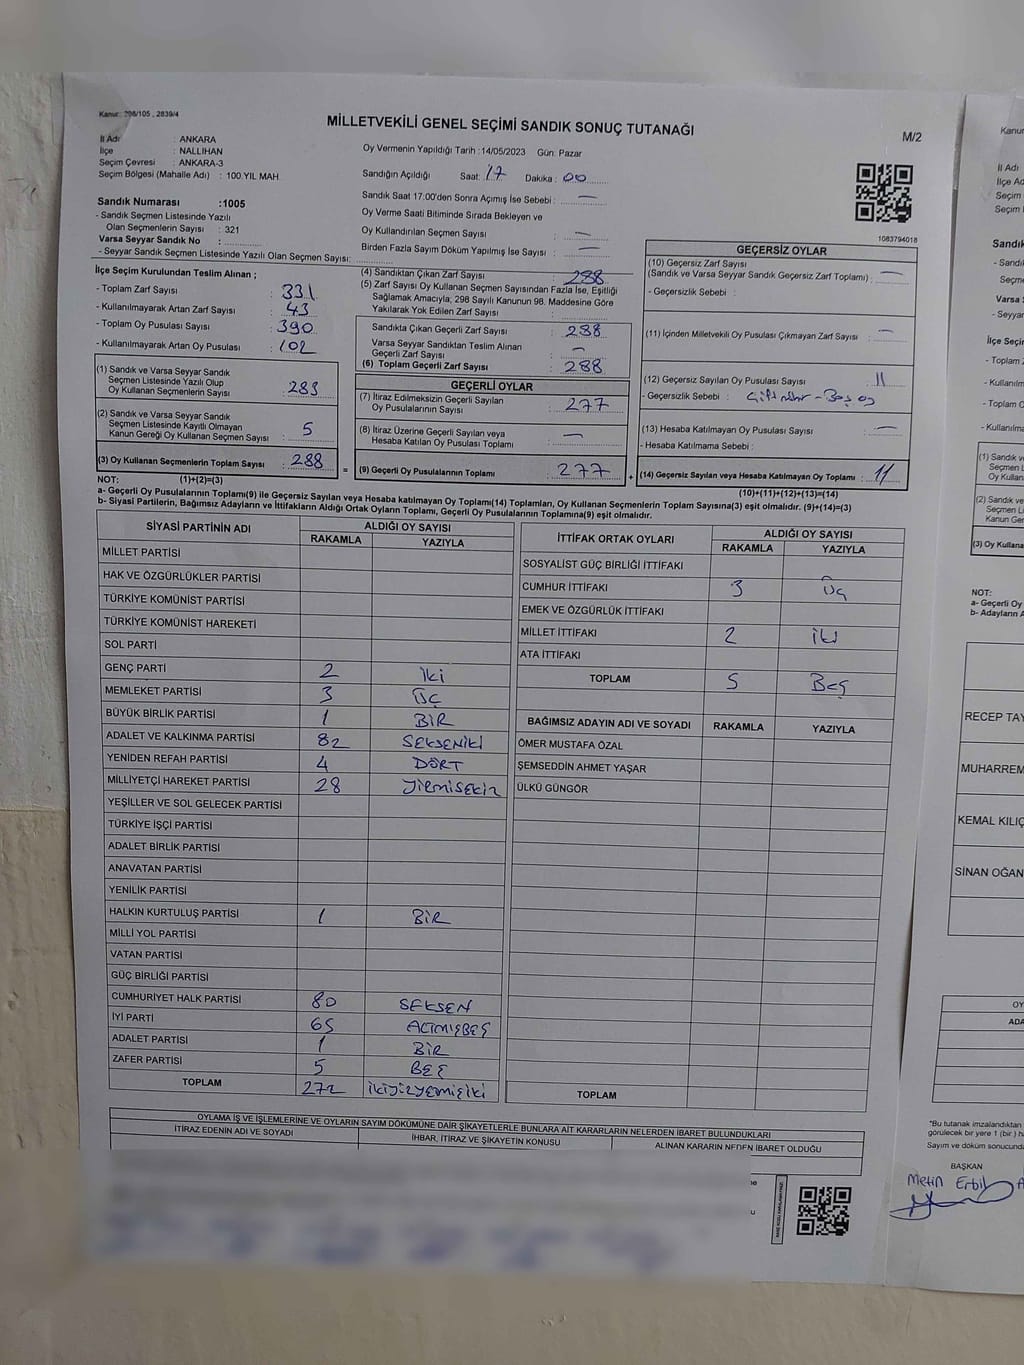 Kanun: 298/105 , 2839/4
MİLLETVEKİLİ GENEL SEÇİMİ SANDIK SONUÇ TUTANAĞI
M/2
İl Adı : ANKARA
İlçe : NALLIHAN
Seçim Çevresi : ANKARA-3
Seçim Bölgesi (Mahalle Adı) : 100.YIL MAH.
Oy Vermenin Yapıldığı Tarih :14/05/2023 Gün: Pazar
Sandığın Açıldığı Saat: 17 Dakika : 00
Sandık Saat 17:00'den Sonra Açımış İse Sebebi : —
Oy Verme Saati Bitiminde Sırada Bekleyen ve
Oy Kullandırılan Seçmen Sayısı : —
Birden Fazla Sayım Döküm Yapılmış İse Sayısı : —
Sandık Numarası :1005
- Sandık Seçmen Listesinde Yazılı
Olan Seçmenlerin Sayısı : 321
Varsa Seyyar Sandık No :
- Seyyar Sandık Seçmen Listesinde Yazılı Olan Seçmen Sayısı:
1683794018
İlçe Seçim Kurulundan Teslim Alınan ;
- Toplam Zarf Sayısı : 331
- Kullanılmayarak Artan Zarf Sayısı : 43
- Toplam Oy Pusulası Sayısı : 390
- Kullanılmayarak Artan Oy Pusulası : 102
(1) Sandık ve Varsa Seyyar Sandık
Seçmen Listesinde Yazılı Olup
Oy Kullanan Seçmenlerin Sayısı : 283
(2) Sandık ve Varsa Seyyar Sandık
Seçmen Listesinde Kayıtlı Olmayan
Kanun Gereği Oy Kullanan Seçmen Sayısı : 5
(3) Oy Kullanan Seçmenlerin Toplam Sayısı : 288
(4) Sandıktan Çıkan Zarf Sayısı : 288
(5) Zarf Sayısı Oy Kullanan Seçmen Sayısından Fazla İse, Eşitliği
Sağlamak Amacıyla; 298 Sayılı Kanunun 98. Maddesine Göre
Yakılarak Yok Edilen Zarf Sayısı :
Sandıkta Çıkan Geçerli Zarf Sayısı : 288
Varsa Seyyar Sandıktan Teslim Alınan
Geçerli Zarf Sayısı : —
(6) Toplam Geçerli Zarf Sayısı : 288
GEÇERLİ OYLAR
(7) İtiraz Edilmeksizin Geçerli Sayılan
Oy Pusulalarının Sayısı : 277
(8) İtiraz Üzerine Geçerli Sayılan veya
Hesaba Katılan Oy Pusulası Toplamı : —
= (9) Geçerli Oy Pusulalarının Toplamı : 277
GEÇERSİZ OYLAR
(10) Geçersiz Zarf Sayısı
(Sandık ve Varsa Seyyar Sandık Geçersiz Zarf Toplamı) : —
- Geçersizlik Sebebi :
(11) İçinden Milletvekili Oy Pusulası Çıkmayan Zarf Sayısı : —
(12) Geçersiz Sayılan Oy Pusulası Sayısı : 11
- Geçersizlik Sebebi : - Boş oy
(13) Hesaba Katılmayan Oy Pusulası Sayısı : —
- Hesaba Katılmama Sebebi :
+ (14) Geçersiz Sayılan veya Hesaba Katılmayan Oy Toplamı : 11
NOT: (1)+(2)=(3) (10)+(11)+(12)+(13)=(14)
a- Geçerli Oy Pusulalarının Toplamı(9) ile Geçersiz Sayılan veya Hesaba katılmayan Oy Toplamı(14) Toplamları, Oy Kullanan Seçmenlerin Toplam Sayısına(3) eşit olmalıdır. (9)+(14)=(3)
b- Siyasi Partilerin, Bağımsız Adayların ve İttifakların Aldığı Ortak Oyların Toplamı, Geçerli Oy Pusulalarının Toplamına(9) eşit olmalıdır.
SİYASİ PARTİNİN ADI ALDIĞI OY SAYISI
RAKAMLA YAZIYLA
MİLLET PARTİSİ
HAK VE ÖZGÜRLÜKLER PARTİSİ
TÜRKİYE KOMÜNİST PARTİSİ
TÜRKİYE KOMÜNİST HAREKETİ
SOL PARTİ
GENÇ PARTİ 2 iki
MEMLEKET PARTİSİ 3 ÜÇ
BÜYÜK BİRLİK PARTİSİ 1 BİR
ADALET VE KALKINMA PARTİSİ 82 SEKSENİKİ
YENİDEN REFAH PARTİSİ 4 DÖRT
MİLLİYETÇİ HAREKET PARTİSİ 28 yirmisekiz
YEŞİLLER VE SOL GELECEK PARTİSİ
TÜRKİYE İŞÇİ PARTİSİ
ADALET BİRLİK PARTİSİ
ANAVATAN PARTİSİ
YENİLİK PARTİSİ
HALKIN KURTULUŞ PARTİSİ 1 BİR
MİLLİ YOL PARTİSİ
VATAN PARTİSİ
GÜÇ BİRLİĞİ PARTİSİ
CUMHURİYET HALK PARTİSİ 80 SEKSEN
İYİ PARTİ 65 ALTMIŞBEŞ
ADALET PARTİSİ 1 BİR
ZAFER PARTİSİ 5 BEŞ
TOPLAM 272 ikiyüzyemişiki
İTTİFAK ORTAK OYLARI ALDIĞI OY SAYISI
RAKAMLA YAZIYLA
SOSYALİST GÜÇ BİRLİĞİ İTTİFAKI
CUMHUR İTTİFAKI 3 Üç
EMEK VE ÖZGÜRLÜK İTTİFAKI
MİLLET İTTİFAKI 2 iki
ATA İTTİFAKI
TOPLAM 5 Beş
BAĞIMSIZ ADAYIN ADI VE SOYADI RAKAMLA YAZIYLA
ÖMER MUSTAFA ÖZAL
ŞEMSEDDİN AHMET YAŞAR
ÜLKÜ GÜNGÖR
TOPLAM
OYLAMA İŞ VE İŞLEMLERİNE VE OYLARIN SAYIM DÖKÜMÜNE DAİR ŞİKAYETLERLE BUNLARA AİT KARARLARIN NELERDEN İBARET BULUNDUKLARI
İTİRAZ EDENİN ADI VE SOYADI İHBAR, İTİRAZ VE ŞİKAYETİN KONUSU ALINAN KARARIN NEDEN İBARET OLDUĞU
Kanu
İl Adı
İlçe Ad
Seçim
Seçim
Sandı
- Sandı
Seçme
Varsa
- Seyyar
İlçe Seçi
- Toplam
- Kullanılma
- Toplam O
- Kullanılma
(1) Sandık v
Seçmen L
Oy Kullan
(2) Sandık ve
Seçmen L
Kanun Ge
(3) Oy Kullana
NOT:
a- Geçerli Oy
b- Adayların A
RECEP TAY
MUHARREM
KEMAL KILIÇ
SİNAN OĞAN
OY
ADA
"Bu tutanak imzalandıktan
görülecek bir yere 1 (bir) h
Sayım ve döküm sonucund
BAŞKAN
Metin Erbil